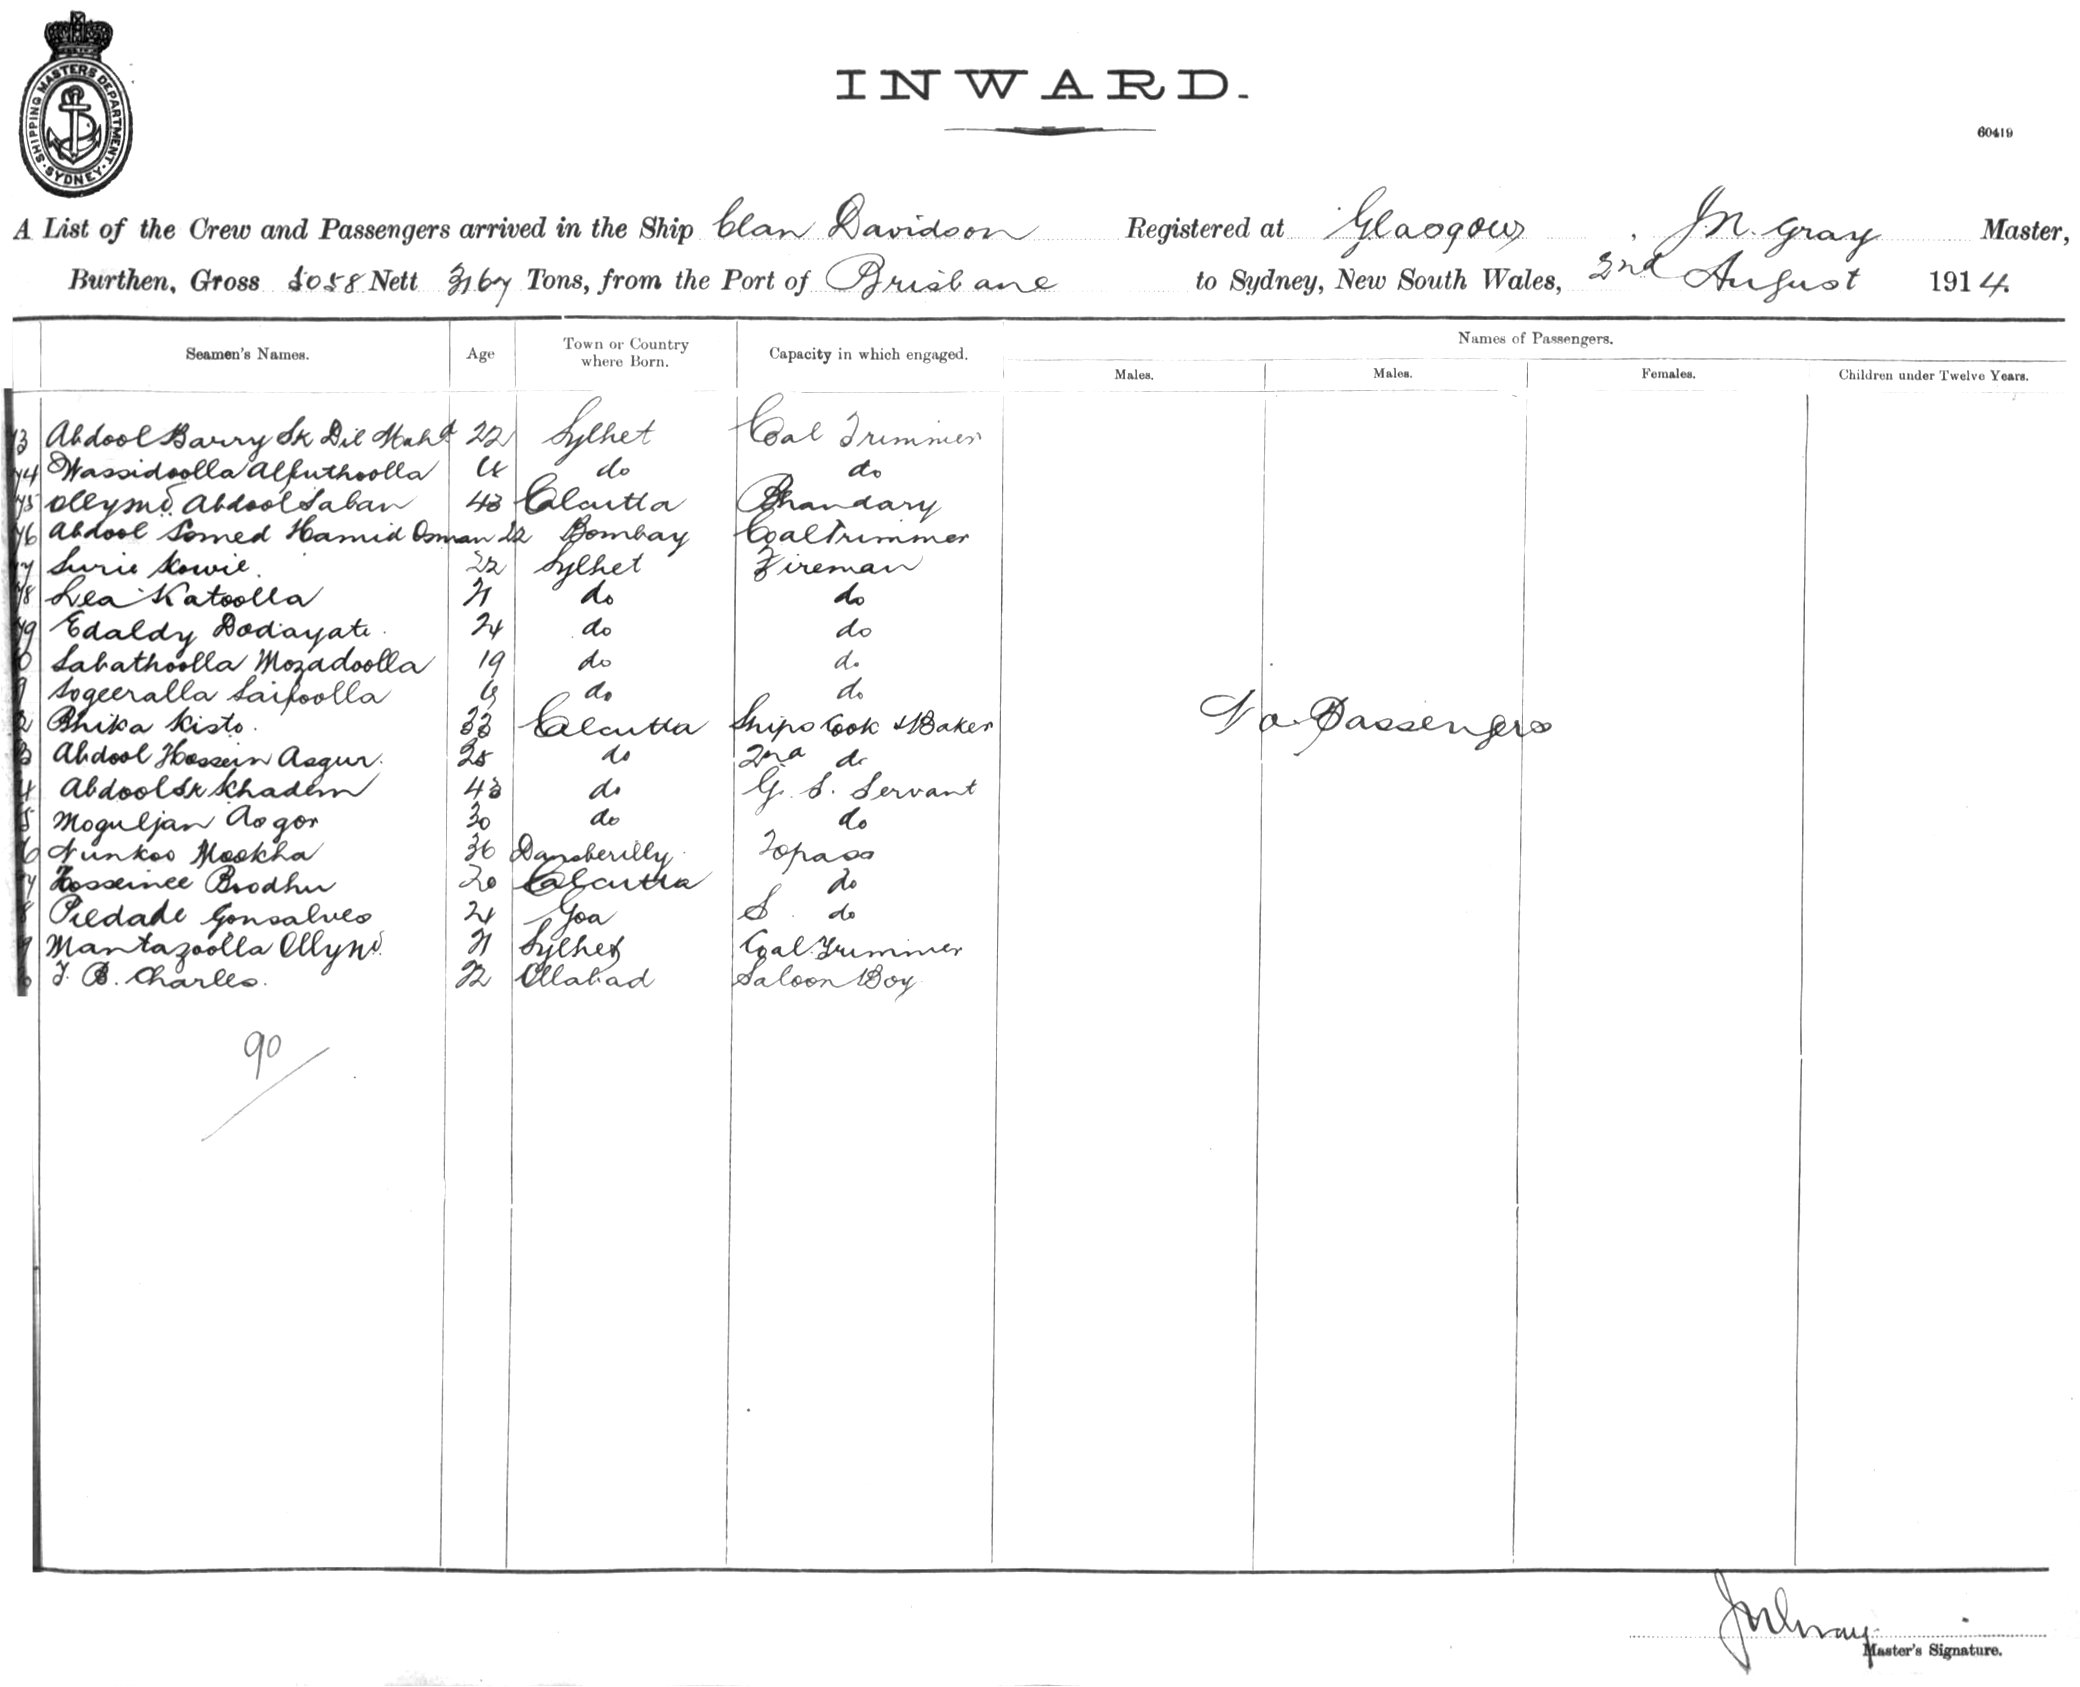 SHIPPING MASTERS DEPARTMENT
SYDNEY
INWARD.
60419
A List of the Crew and Passengers arrived in the Ship Clan Davidson Registered at Glasgow, J.N. Gray Master,
Burthen, Gross 5058 Nett 3167 Tons, from the Port of Brisbane to Sydney, New South Wales, 2nd August 1914.
Names of Passengers.
Seamen's Names. Age Town or Country where Born. Capacity in which engaged. Males. Males. Females. Children under Twelve Years.
Abdool Barry Sk Dil Mahd 22 Sylhet Coal Trimmer
74 Wassidoolla Alfuthoolla do do
75 Ollymd. Abdool Saban 43 Calcutta Bhandary
76 Abdool Somed Hamid Osman 22 Bombay Coal Trimmer
Surie Kowie. 22 Sylhet Fireman
78 Lea Katoolla 21 do do
79 Edaldy Dodayate. 24 do do
Sabathoolla Mozadoolla 19 do do
Sogeeralla Saifoolla do do
2 Bhika Kisto. 33 Calcutta Ships Cook & Baker
3 Abdool Hossein Asgur. 25 do 2nd do
4 Abdool Sk Khadem 43 do G. S. Servant
5 Moguljan Asgor 30 do do
6 Nunkoo Mookha 36 Topass
7 Hosseinee Boodhu 20 Calcutta do
8 Piedade Gonsalves 24 Goa S. do
9 Mantazoolla Ollymd. 21 Sylhet Coal Trimmer
J. B. Charles. 22 Allabad Saloon Boy
No Passengers
90
JNGray
Master's Signature.